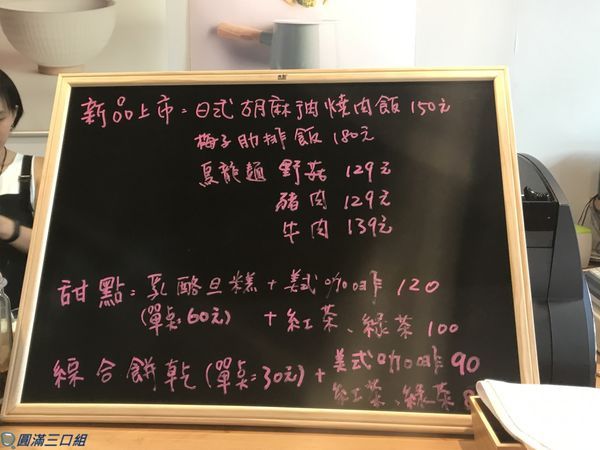 新品上市：日式胡麻油燒肉飯 150元
梅子肋排飯 180元
烏龍麵 野菇 129元
豬肉 129元
牛肉 139元
甜點：乳酪旦糕 + 美式咖啡 120
(單點：60元) + 紅茶、綠茶 100
綜合餅乾 (單點：30元) + 美式咖啡 90
紅茶、綠茶
圓滿三口組